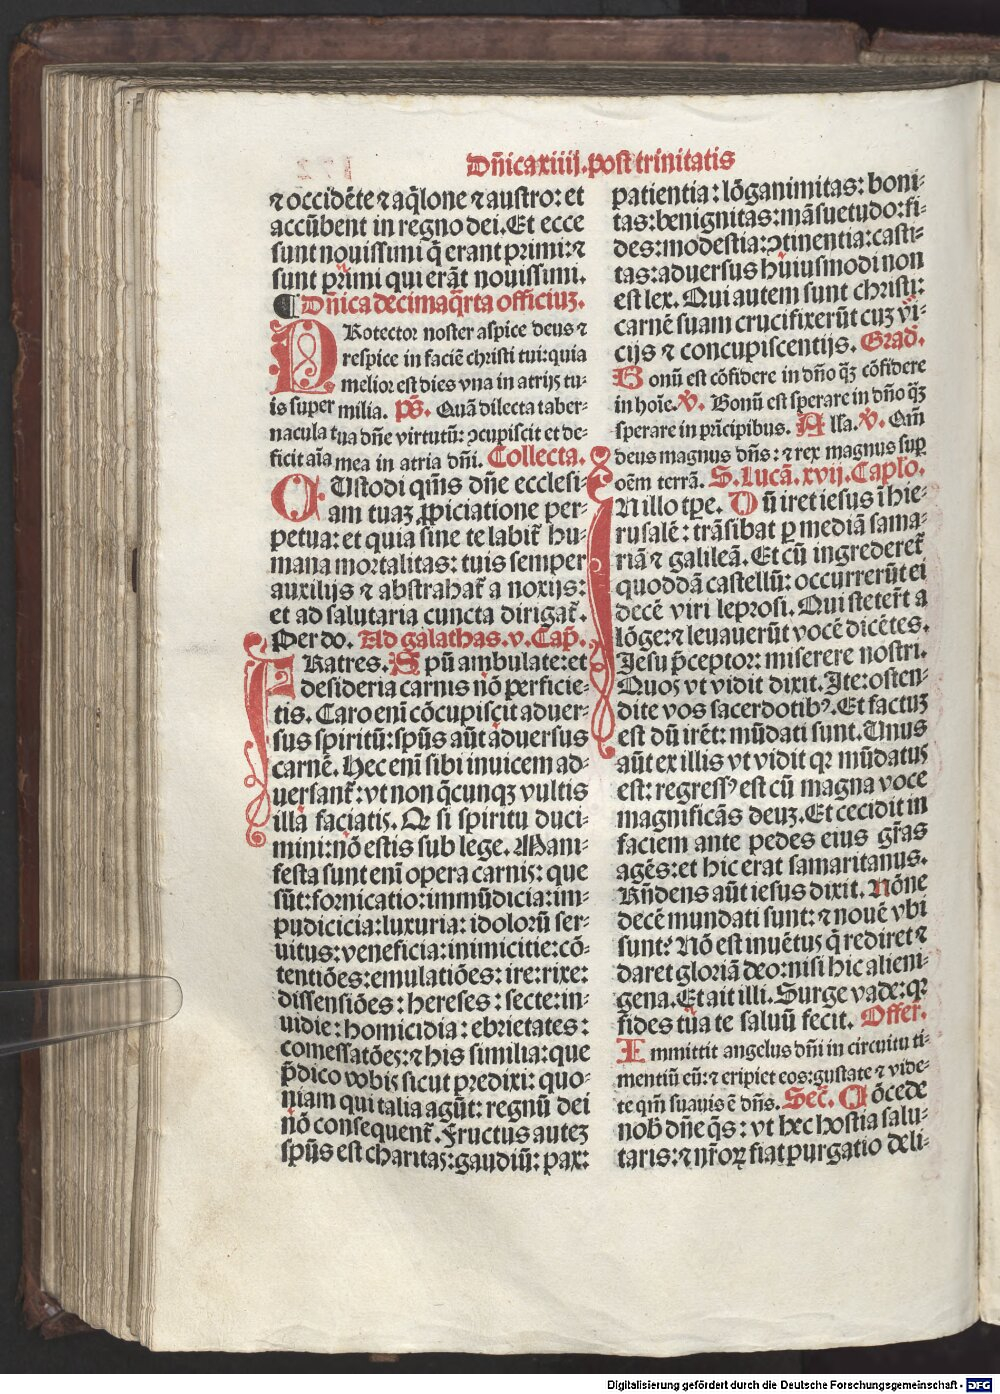 Dñica xiiij. post trinitatis
⁊ occidẽte ⁊ aq̃lone ⁊ austro: et
accũbent in regno dei. Et ecce
sunt nouissimi q̃ erant primi: ⁊
sunt primi qui erãt nouissimi.
¶ Dñica decimaq̃rta officiuz.
PRotector noster aspice deus ⁊
respice in faciẽ christi tui: quia
melior est dies vna in atrijs tu-
is super milia. p̃s. Quã dilecta taber-
nacula tua dñe virtutũ: ꝯcupiscit et de-
ficit aĩa mea in atria dñi. Collecta.
CUstodi q̃ms dñe ecclesi-
am tuaz ꝓpiciatione per-
petua: et quia sine te labit̃ hu-
mana mortalitas: tuis semper
auxilijs ⁊ abstrahat̃ a noxijs:
et ad salutaria cuncta dirigat̃.
Per do. Ad galathas. v. Cap̃.
FRatres. Spũ ambulate: et
desideria carnis nõ perficie-
tis. Caro enĩ cõcupiscit aduer-
sus spiritũ: spũs aũt aduersus
carnẽ. Hec enĩ sibi inuicem ad-
uersant̃: vt non q̃cunqꝫ vultis
illa faciatis. Qr si spiritu duci-
mini: nõ estis sub lege. Mani-
festa sunt enĩ opera carnis: que
sũt: fornicatio: immũdicia: im-
pudicicia: luxuria: idolorũ ser-
uitus: veneficia: inimicitie: cõ-
tentiões: emulatiões: ire: rixe:
dissensiões: hereses: secte: in-
uidie: homicidia: ebrietates:
comessatões: ⁊ his similia: que
p̃dico vobis sicut predixi: quo-
niam qui talia agũt: regnũ dei
nõ consequent̃. Fructus autez
spũs est charitas: gaudiũ: pax:
patientia: lõganimitas: boni-
tas: benignitas: mãsuetudo: fi-
des: modestia: ꝯtinentia: casti-
tas: aduersus huiusmodi non
est lex. Qui autem sunt christi:
carnẽ suam crucifixerũt cuz vi-
cijs ⁊ concupiscentijs. Grad.
Bonũ est cõfidere in dño qꝫ cõfidere
in hoĩe. ℣. Bonũ est sperare in dño qꝫ
sperare in prĩcipibus. Alla. ℣. Qm̃
deus magnus dñs: ⁊ rex magnus sup
oẽm terrã. S. Lucã. xvij. Caplo.
IN illo tpe. Dũ iret iesus ĩ hie-
rusalẽ: trãsibat ꝑ mediã sama-
riã ⁊ galileã. Et cũ ingrederet̃
quoddã castellũ: occurrerũt ei
decẽ viri leprosi. Qui steter̃t a
lõge: ⁊ leuauerũt vocẽ dicẽtes.
Jesu p̃ceptor: miserere nostri.
Quos vt vidit dixit. Ite: osten-
dite vos sacerdotibꝰ. Et factuz
est dũ irẽt: mũdati sunt. Unus
aũt ex illis vt vidit qr mũdatus
est: regressꝰ est cũ magna voce
magnificãs deuz. Et cecidit in
faciem ante pedes eius gr̃as
agẽs: et hic erat samaritanus.
Rñdens aũt iesus dixit. Nõne
decẽ mundati sunt: ⁊ nouẽ vbi
sunt? Nõ est inuẽtus q̃ rediret ⁊
daret gloriã deo: nisi hic alieni-
gena. Et ait illi. Surge vade: qr
fides tua te saluũ fecit. Offer̃.
Immittit angelus dñi in circuitu ti-
mentiũ eũ: ⁊ eripiet eos: gustate ⁊ vide-
te qm̃ suauis ẽ dñs. Sec̃. Cõcede
nob̃ dñe q̃s: vt hec hostia salu-
taris: ⁊ nr̃oꝝ fiat purgatio deli-
Digitalisierung gefördert durch die Deutsche Forschungsgemeinschaft - DFG